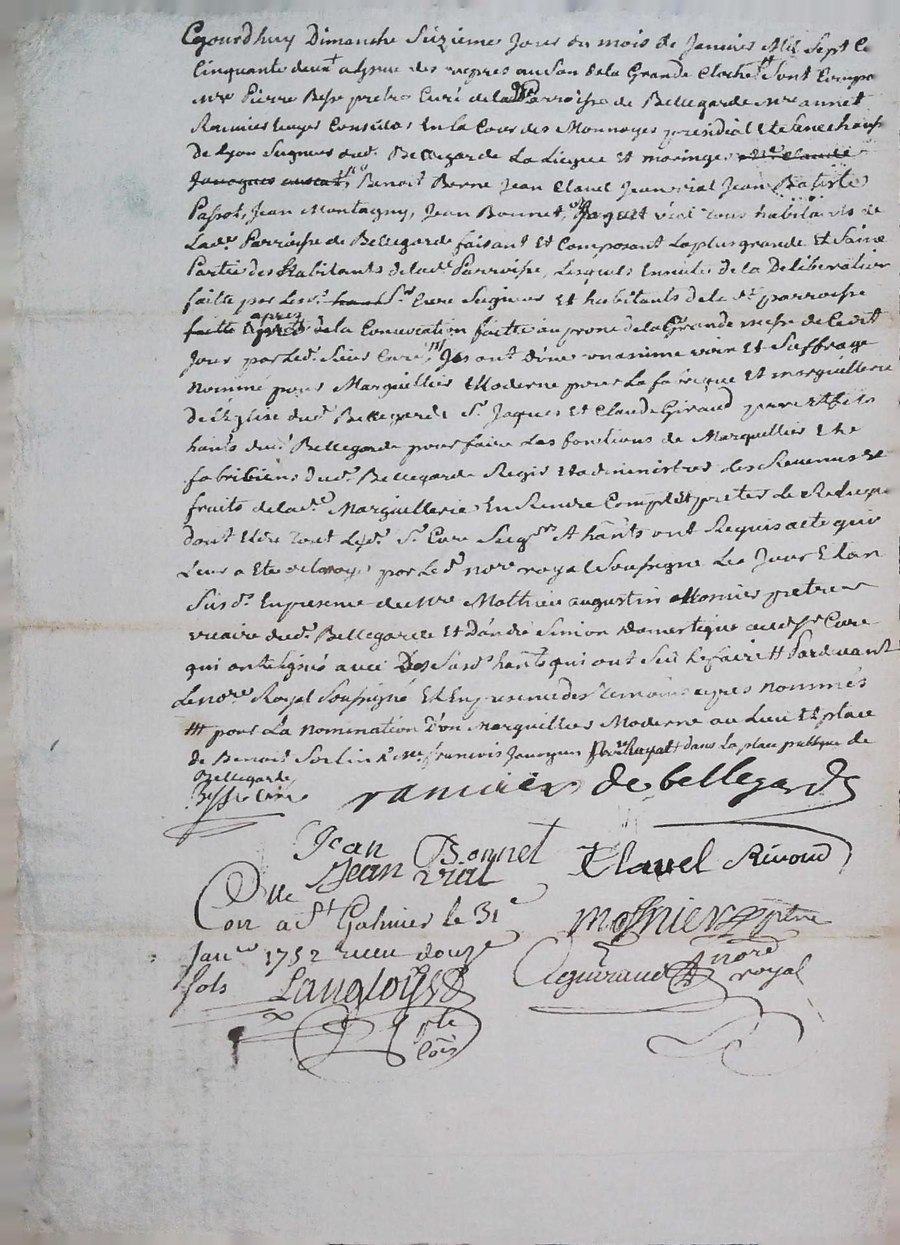 Cejourdhuy Dimanche Seizieme Jour du mois de Janvier Mil Sept Ce
Cinquante deux a Lissue des vepres au Son de la Grande Cloche Sont Comparu
Mre Pierre Besse pretre Curé de la Parroisse de Bellegarde Mre annet
Ranvier Ecuyer Conseiller En la Cour des Monnoyes presidial et Senechaussé
de Lyon Seigneur dud. Bellegarde La Liegue et maringe
Benoit Berne Jean Clavel Jean vial Jean Batiste
Passot, Jean Montagny, Jean Bonnet, Jaquet vial tous habitants de
Lade Parroisse de Bellegarde faisant et Composant La plus grande et Saine
Partie des habitants de lade Parroisse, Lesquels Ensuitte de la Deliberation
faitte par Lesd. Sr Curé Seigneur et habitants de la de parroisse
faitte apres de la Convocation faitte au prone de la Grande messe de Cedit
Jour par Led. Sieur Curé, Ils ont d'une unanime voix et Suffrage
Nommé pour Marguillier Moderne pour La fabrique et marguillerie
de L'Eglise dud. Bellegarde Sr Jaques et Claude Giraud pere et fils
hants dud. Bellegarde pour faire Les fonctions de Marguillier et de
fabriciens dud. Bellegarde Regir et administrer les Revenus et
fruits de lade Marguillerie En Rendre Compte et preter Le Reliqua
dont et du tout Lesd. Sr Curé Seigr et hants ont Requis acte qui
Leur a Eté octroyé par Le d. nore royal Soussigné Les Jour et an
Susd. En presence de Mre Mathieu augustin Mosnier pretre
vicaire dud. Bellegarde et d'andré Simon domestique aud. Sr Curé
qui ont signé avec Des Susd. hants qui ont Sceu le faire # Pardevant
Le nore Royal Soussigné Et En presence des temoins apres nommés
## pour La nomination d'un Marguillier Moderne au Lieu et place
de Benoit Sorlin # Me francois Jacoquet dans La place publique de
Bellegarde
Besse Curé ranvier de bellegarde
Jean Bonnet Clavel Simond
Jean vial
Con a St Galmier le 31e mosnier pretre
Janer 1752 recu douze
sols Langlois nore royal